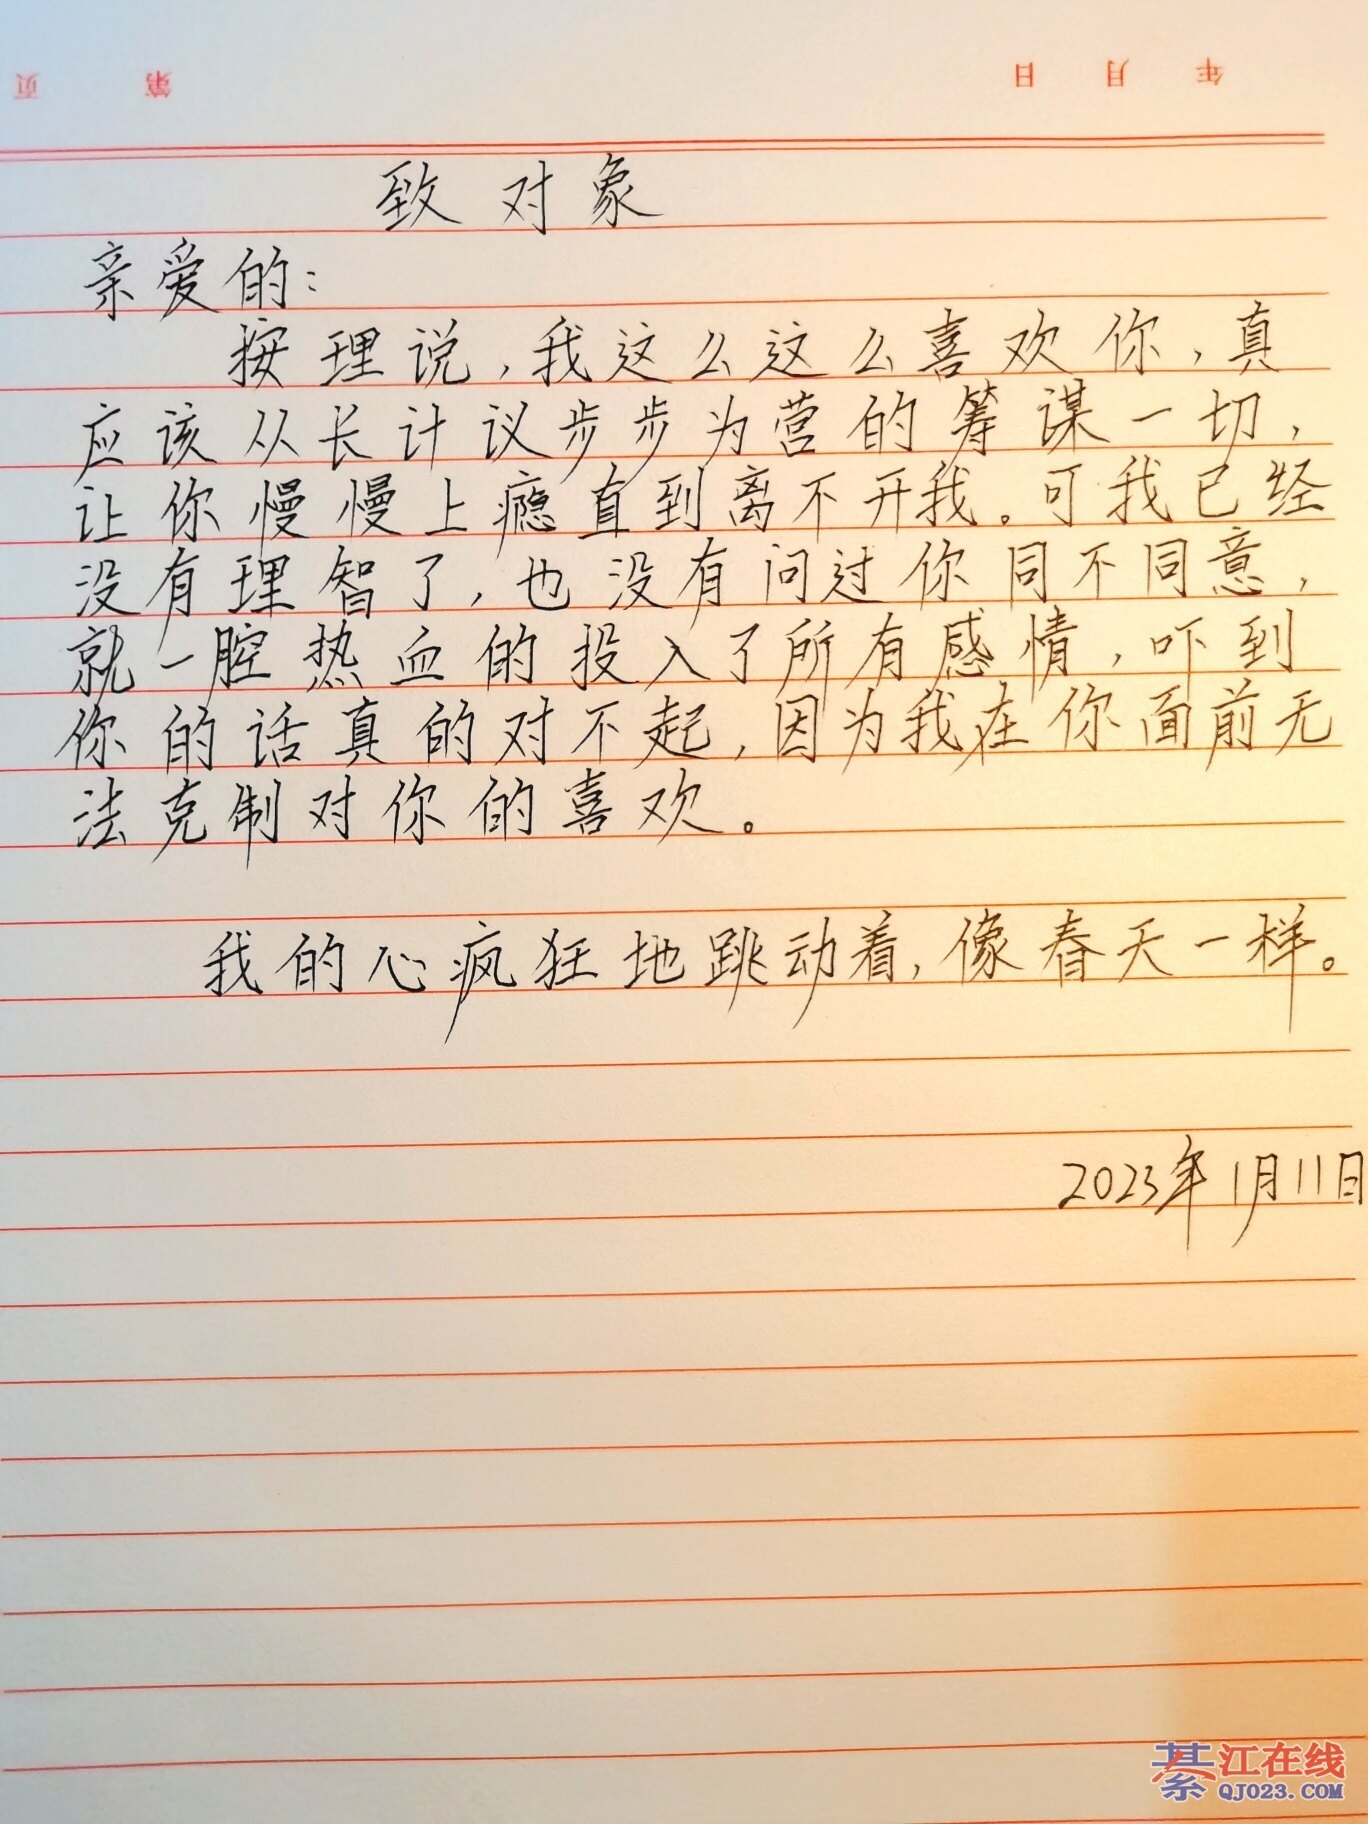 年 月 日 第 页
致对象
亲爱的:
按理说,我这么这么喜欢你,真
应该从长计议步步为营的筹谋一切,
让你慢慢上瘾直到离不开我。可我已经
没有理智了,也没有问过你同不同意,
就一腔热血的投入了所有感情,吓到
你的话真的对不起,因为我在你面前无
法克制对你的喜欢。
我的心疯狂地跳动着,像春天一样。
2023年1月11日
綦江在线
QJ023.COM